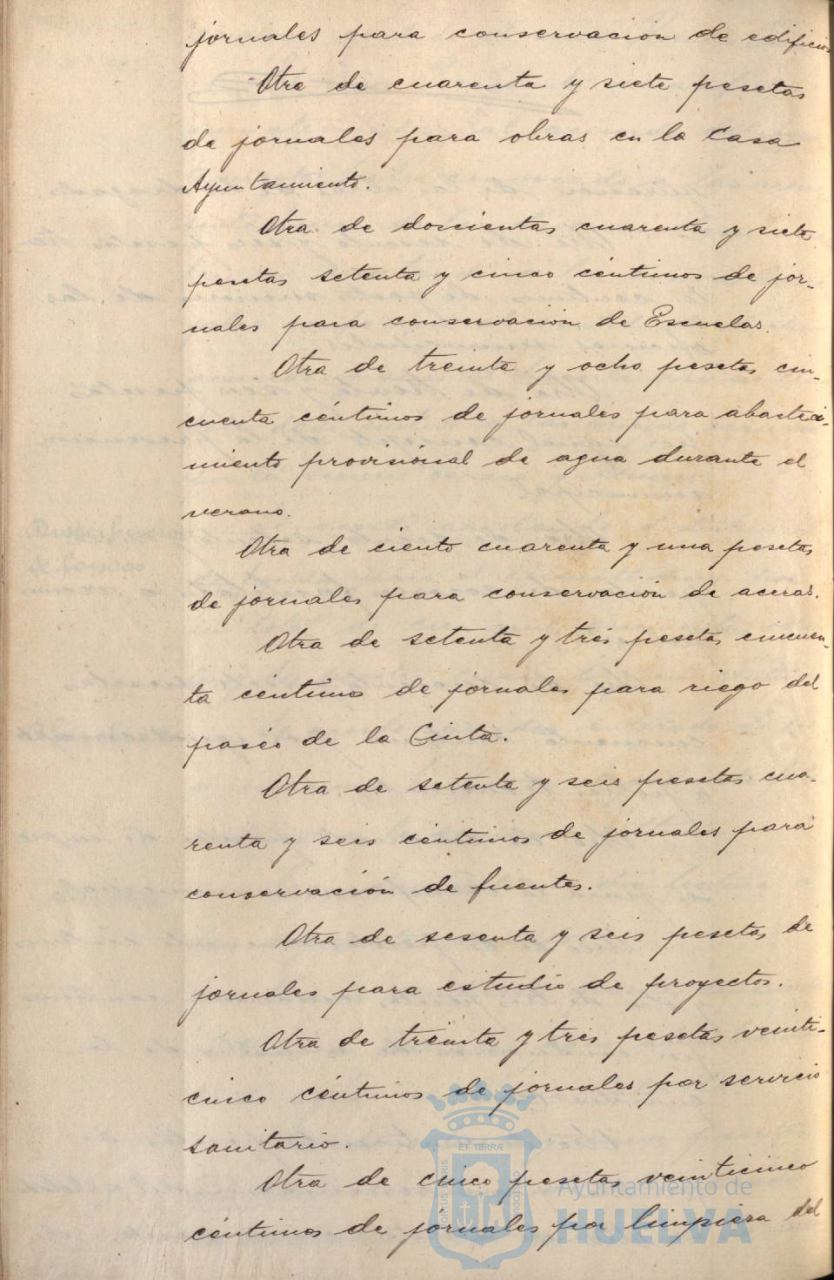 jornales para conservacion de edificios
Otra de cuarenta y siete pesetas
de jornales para obras en la Casa
Ayuntamiento.
Otra de doscientas cuarenta y siete
pesetas setenta y cinco céntimos de jor-
nales para conservacion de Escuelas.
Otra de treinta y ocho pesetas cin-
cuenta céntimos de jornales para abasteci-
miento provisional de agua durante el
verano.
Otra de ciento cuarenta y una pesetas
de jornales para conservación de aceras.
Otra de setenta y tres pesetas cincuen-
ta céntimos de jornales para riego del
paseo de la Cinta.
Otra de setenta y seis pesetas cua-
renta y seis céntimos de jornales para
conservación de fuentes.
Otra de sesenta y seis pesetas de
jornales para estudio de proyectos.
Otra de treinta y tres pesetas veinti-
cinco céntimos de jornales por servicio
sanitario.
Otra de cinco pesetas veinticinco
céntimos de jornales por limpieza del
Ayuntamiento de
HUELVA